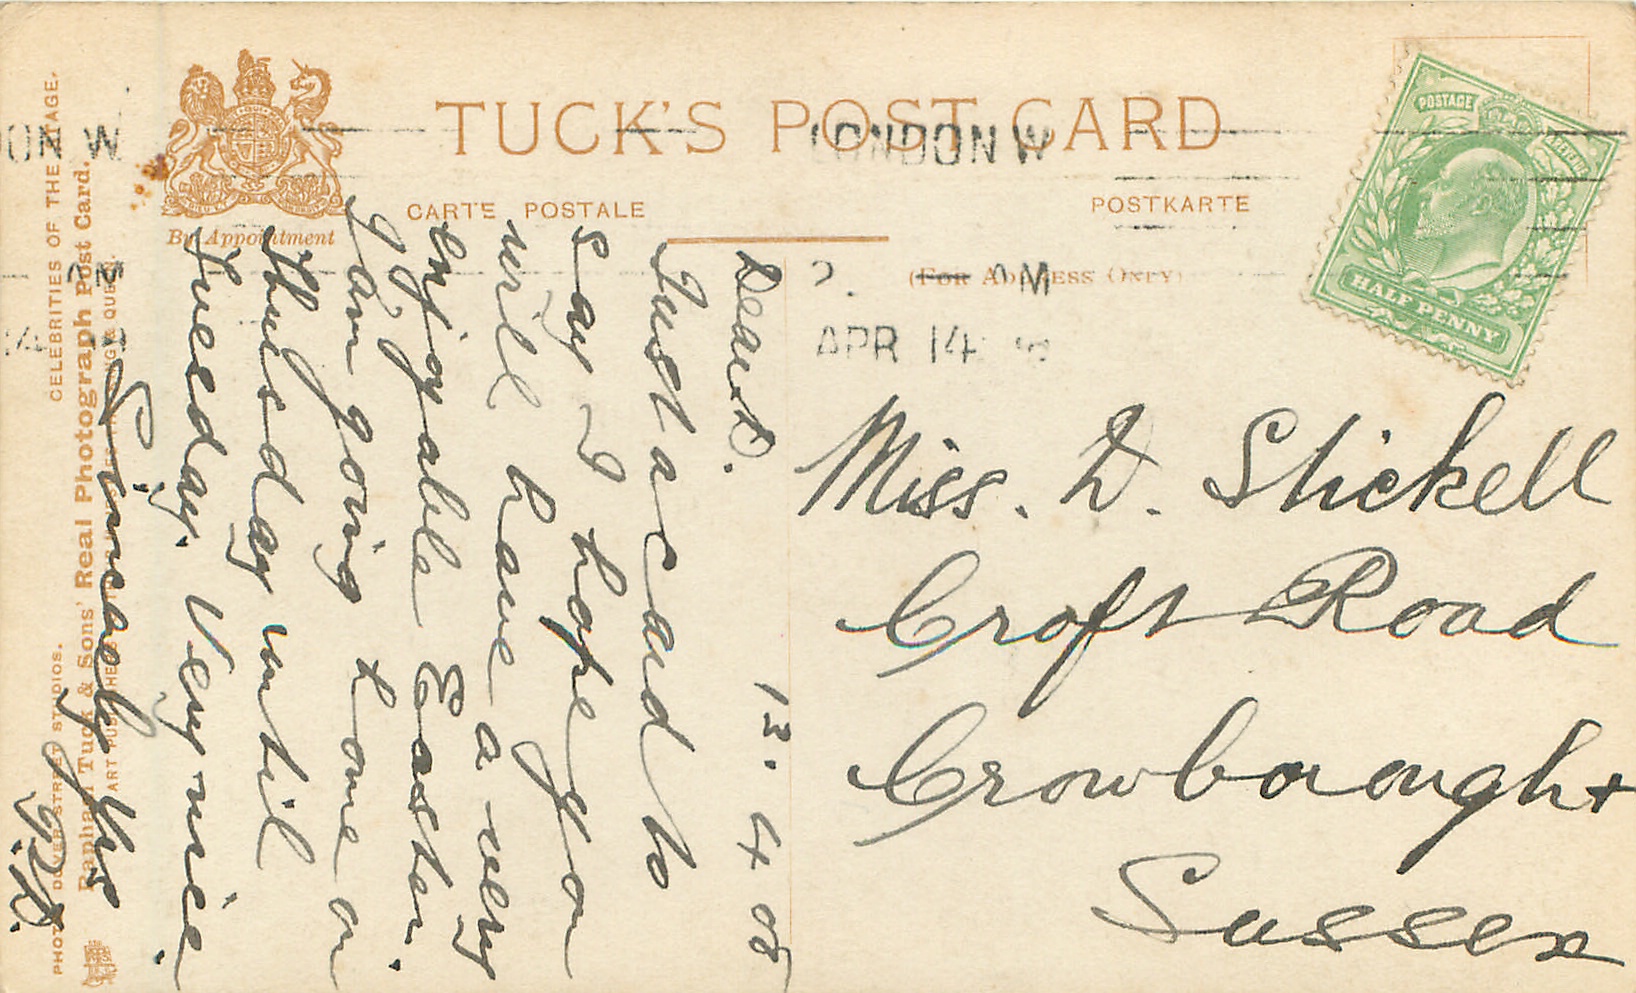 TUCK'S POST CARD
CARTE POSTALE
POSTKARTE
(For Address Only)
By Appointment
POSTAGE
REVENUE
HALF PENNY
LONDON W
APR 14
ON W
CELEBRITIES OF THE STAGE.
Raphael Tuck & Sons' Real Photograph Post Card.
PHOTO DOVER STREET STUDIOS.
13. 4 08
Dear D.
Just a card to
say I hope you
will have a very
enjoyable Easter.
I am going home on
Thursday until
Tuesday. Very nice.
Sincerely Yrs
Miss. D. Stickell
Croft Road
Crowborough
Sussex